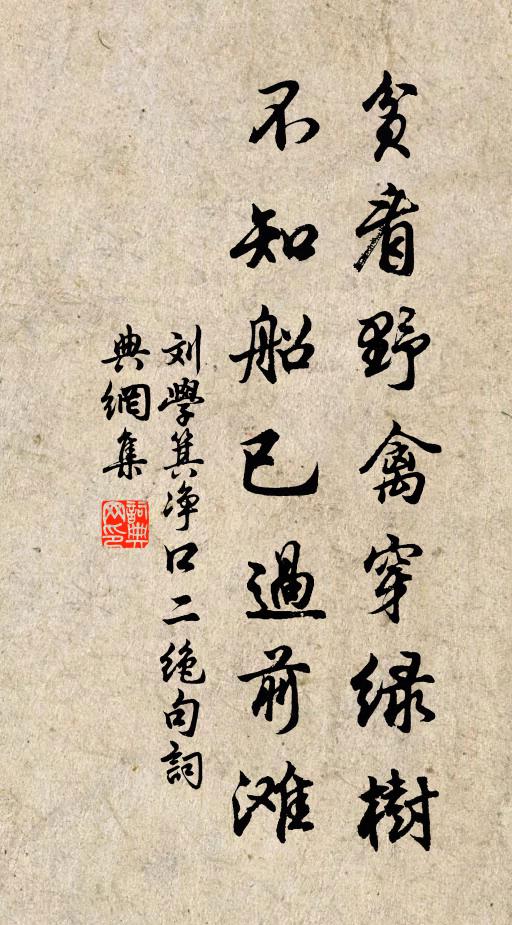 贪看野禽穿绿樹
不知船已過前滩
刘學箕净口二绝句詞
典網集
詞典
网印